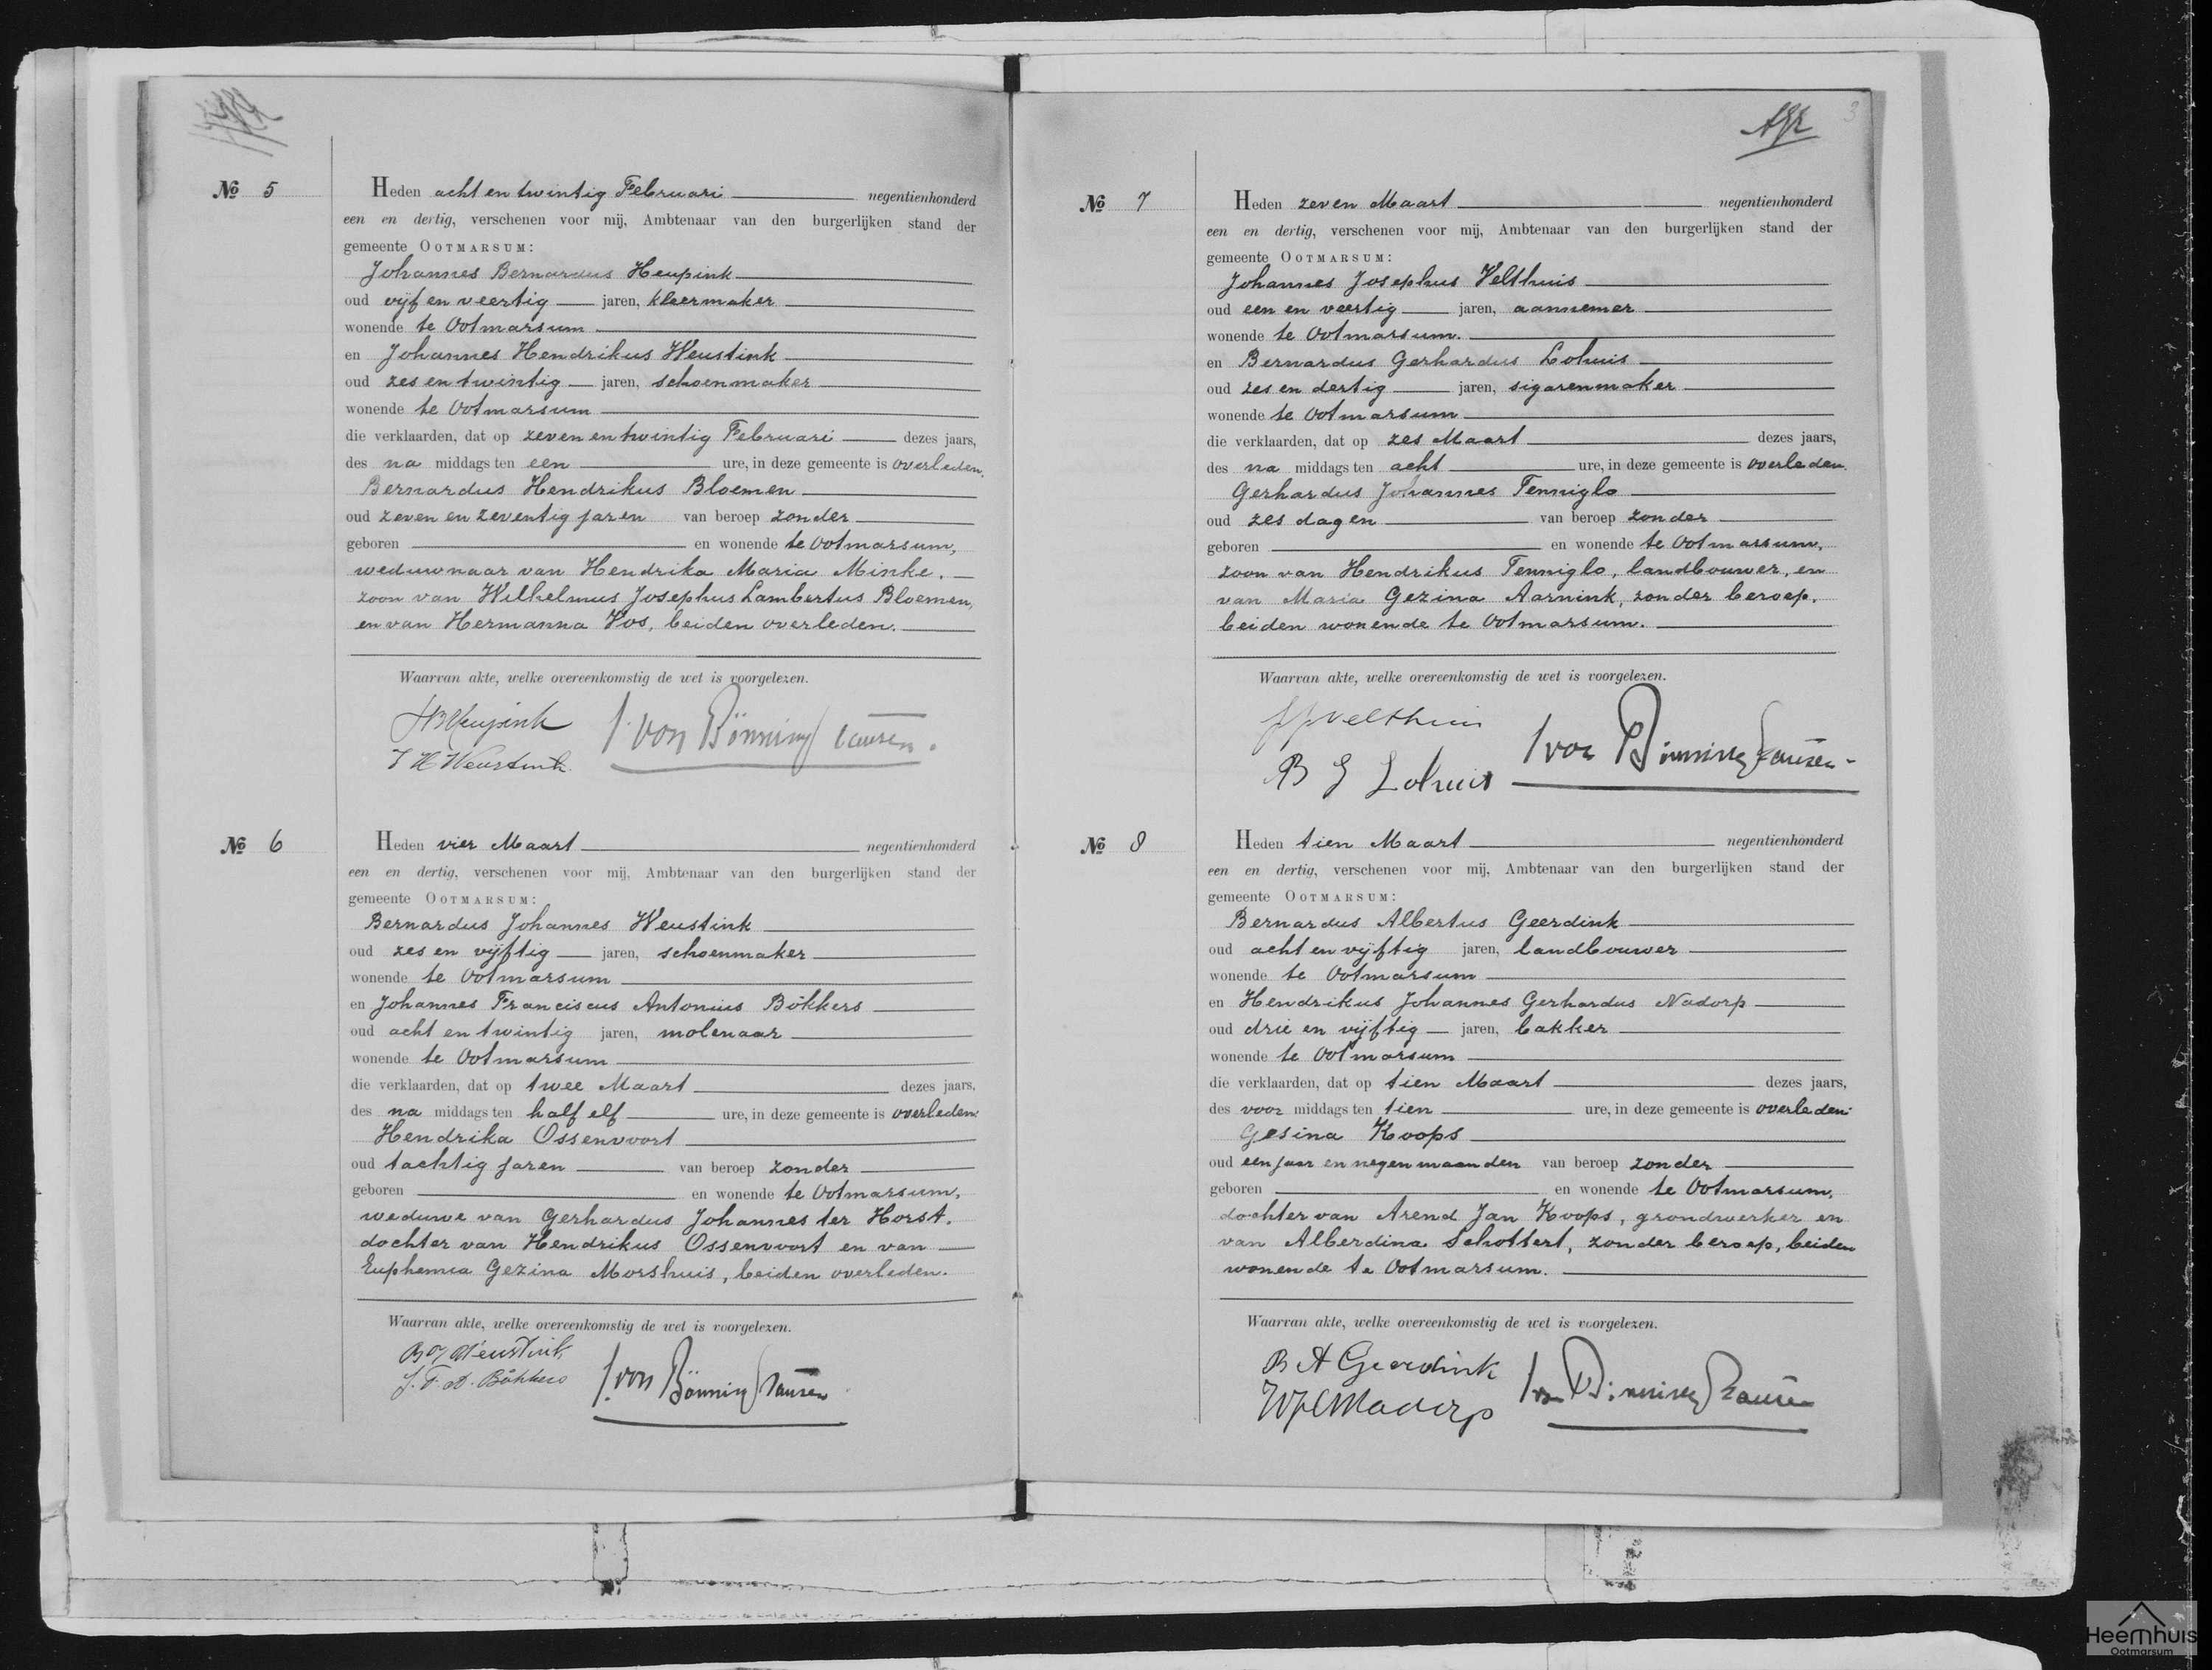 № 5
Heden acht en twintig Februari negentienhonderd
een en dertig, verschenen voor mij, Ambtenaar van den burgerlijken stand der
gemeente OOTMARSUM:
Johannes Bernardus Heupink
oud vijf en veertig jaren, kleermaker
wonende te Ootmarsum
en Johannes Hendrikus Weustink
oud zes en twintig jaren, schoenmaker
wonende te Ootmarsum
die verklaarden, dat op zeven en twintig Februari dezes jaars,
des na middags ten een ure, in deze gemeente is overleden.
Bernardus Hendrikus Bloemen
oud zeven en zeventig jaren van beroep zonder
geboren en wonende te Ootmarsum,
weduwnaar van Hendrika Maria Minke.
zoon van Wilhelmus Josephus Lambertus Bloemen,
en van Hermanna Vos, beiden overleden.
Waarvan akte, welke overeenkomstig de wet is voorgelezen.
JBHeupink
J H Weustink.
J. von Bönninghausen.
№ 6
Heden vier Maart negentienhonderd
een en dertig, verschenen voor mij, Ambtenaar van den burgerlijken stand der
gemeente OOTMARSUM:
Bernardus Johannes Weustink
oud zes en vijftig jaren, schoenmaker
wonende te Ootmarsum
en Johannes Franciscus Antonius Bökkers
oud acht en twintig jaren, molenaar
wonende te Ootmarsum
die verklaarden, dat op twee Maart dezes jaars,
des na middags ten half elf ure, in deze gemeente is overleden:
Hendrika Ossenvoort
oud tachtig jaren van beroep zonder
geboren en wonende te Ootmarsum,
weduwe van Gerhardus Johannes ter Horst.
dochter van Hendrikus Ossenvoort en van
Euphemia Gezina Morshuis, beiden overleden.
Waarvan akte, welke overeenkomstig de wet is voorgelezen.
BJ Weustink
J. F. A. Bökkers
J. von Bönninghausen
3
№ 7
Heden zeven Maart negentienhonderd
een en dertig, verschenen voor mij, Ambtenaar van den burgerlijken stand der
gemeente OOTMARSUM:
Johannes Josephus Velthuis
oud een en veertig jaren, aannemer
wonende te Ootmarsum.
en Bernardus Gerhardus Lohuis
oud zes en dertig jaren, sigarenmaker
wonende te Ootmarsum
die verklaarden, dat op zes Maart dezes jaars,
des na middags ten acht ure, in deze gemeente is overleden.
Gerhardus Johannes Tenniglo
oud zes dagen van beroep zonder
geboren en wonende te Ootmarsum,
zoon van Hendrikus Tenniglo, landbouwer, en
van Maria Gezina Aarnink, zonder beroep.
beiden wonende te Ootmarsum.
Waarvan akte, welke overeenkomstig de wet is voorgelezen.
JJVelthuis
B G Lohuis
J von Bönninghausen
№ 8
Heden tien Maart negentienhonderd
een en dertig, verschenen voor mij, Ambtenaar van den burgerlijken stand der
gemeente OOTMARSUM:
Bernardus Albertus Geerdink
oud acht en vijftig jaren, landbouwer
wonende te Ootmarsum
en Hendrikus Johannes Gerhardus Nadorp
oud drie en vijftig jaren, bakker
wonende te Ootmarsum
die verklaarden, dat op tien Maart dezes jaars,
des voor middags ten tien ure, in deze gemeente is overleden:
Gesina Koops
oud een jaar en negen maanden van beroep zonder
geboren en wonende te Ootmarsum,
dochter van Arend Jan Koops, grondwerker en
van Alberdina Schottert, zonder beroep, beiden
wonende te Ootmarsum.
Waarvan akte, welke overeenkomstig de wet is voorgelezen.
B A Geerdink
HJGNadorp
J von Bönninghausen
Heemhuis
Ootmarsum